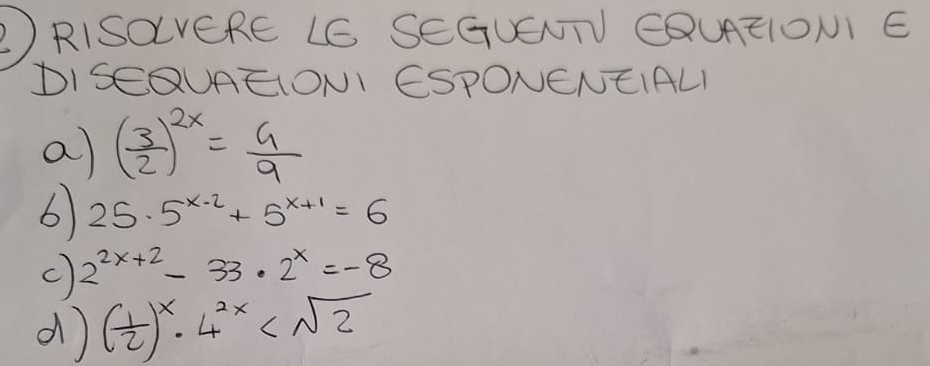 2) RISOLVERE LE SEGUENTI EQUAZIONI E
DISEQUAZIONI ESPONENZIALI
a) (3/2)^2x = 4/9
b) 25 · 5^x-2 + 5^x+1 = 6
c) 2^2x+2 - 33 · 2^x = -8
d) (1/2)^x · 4^2x < √2